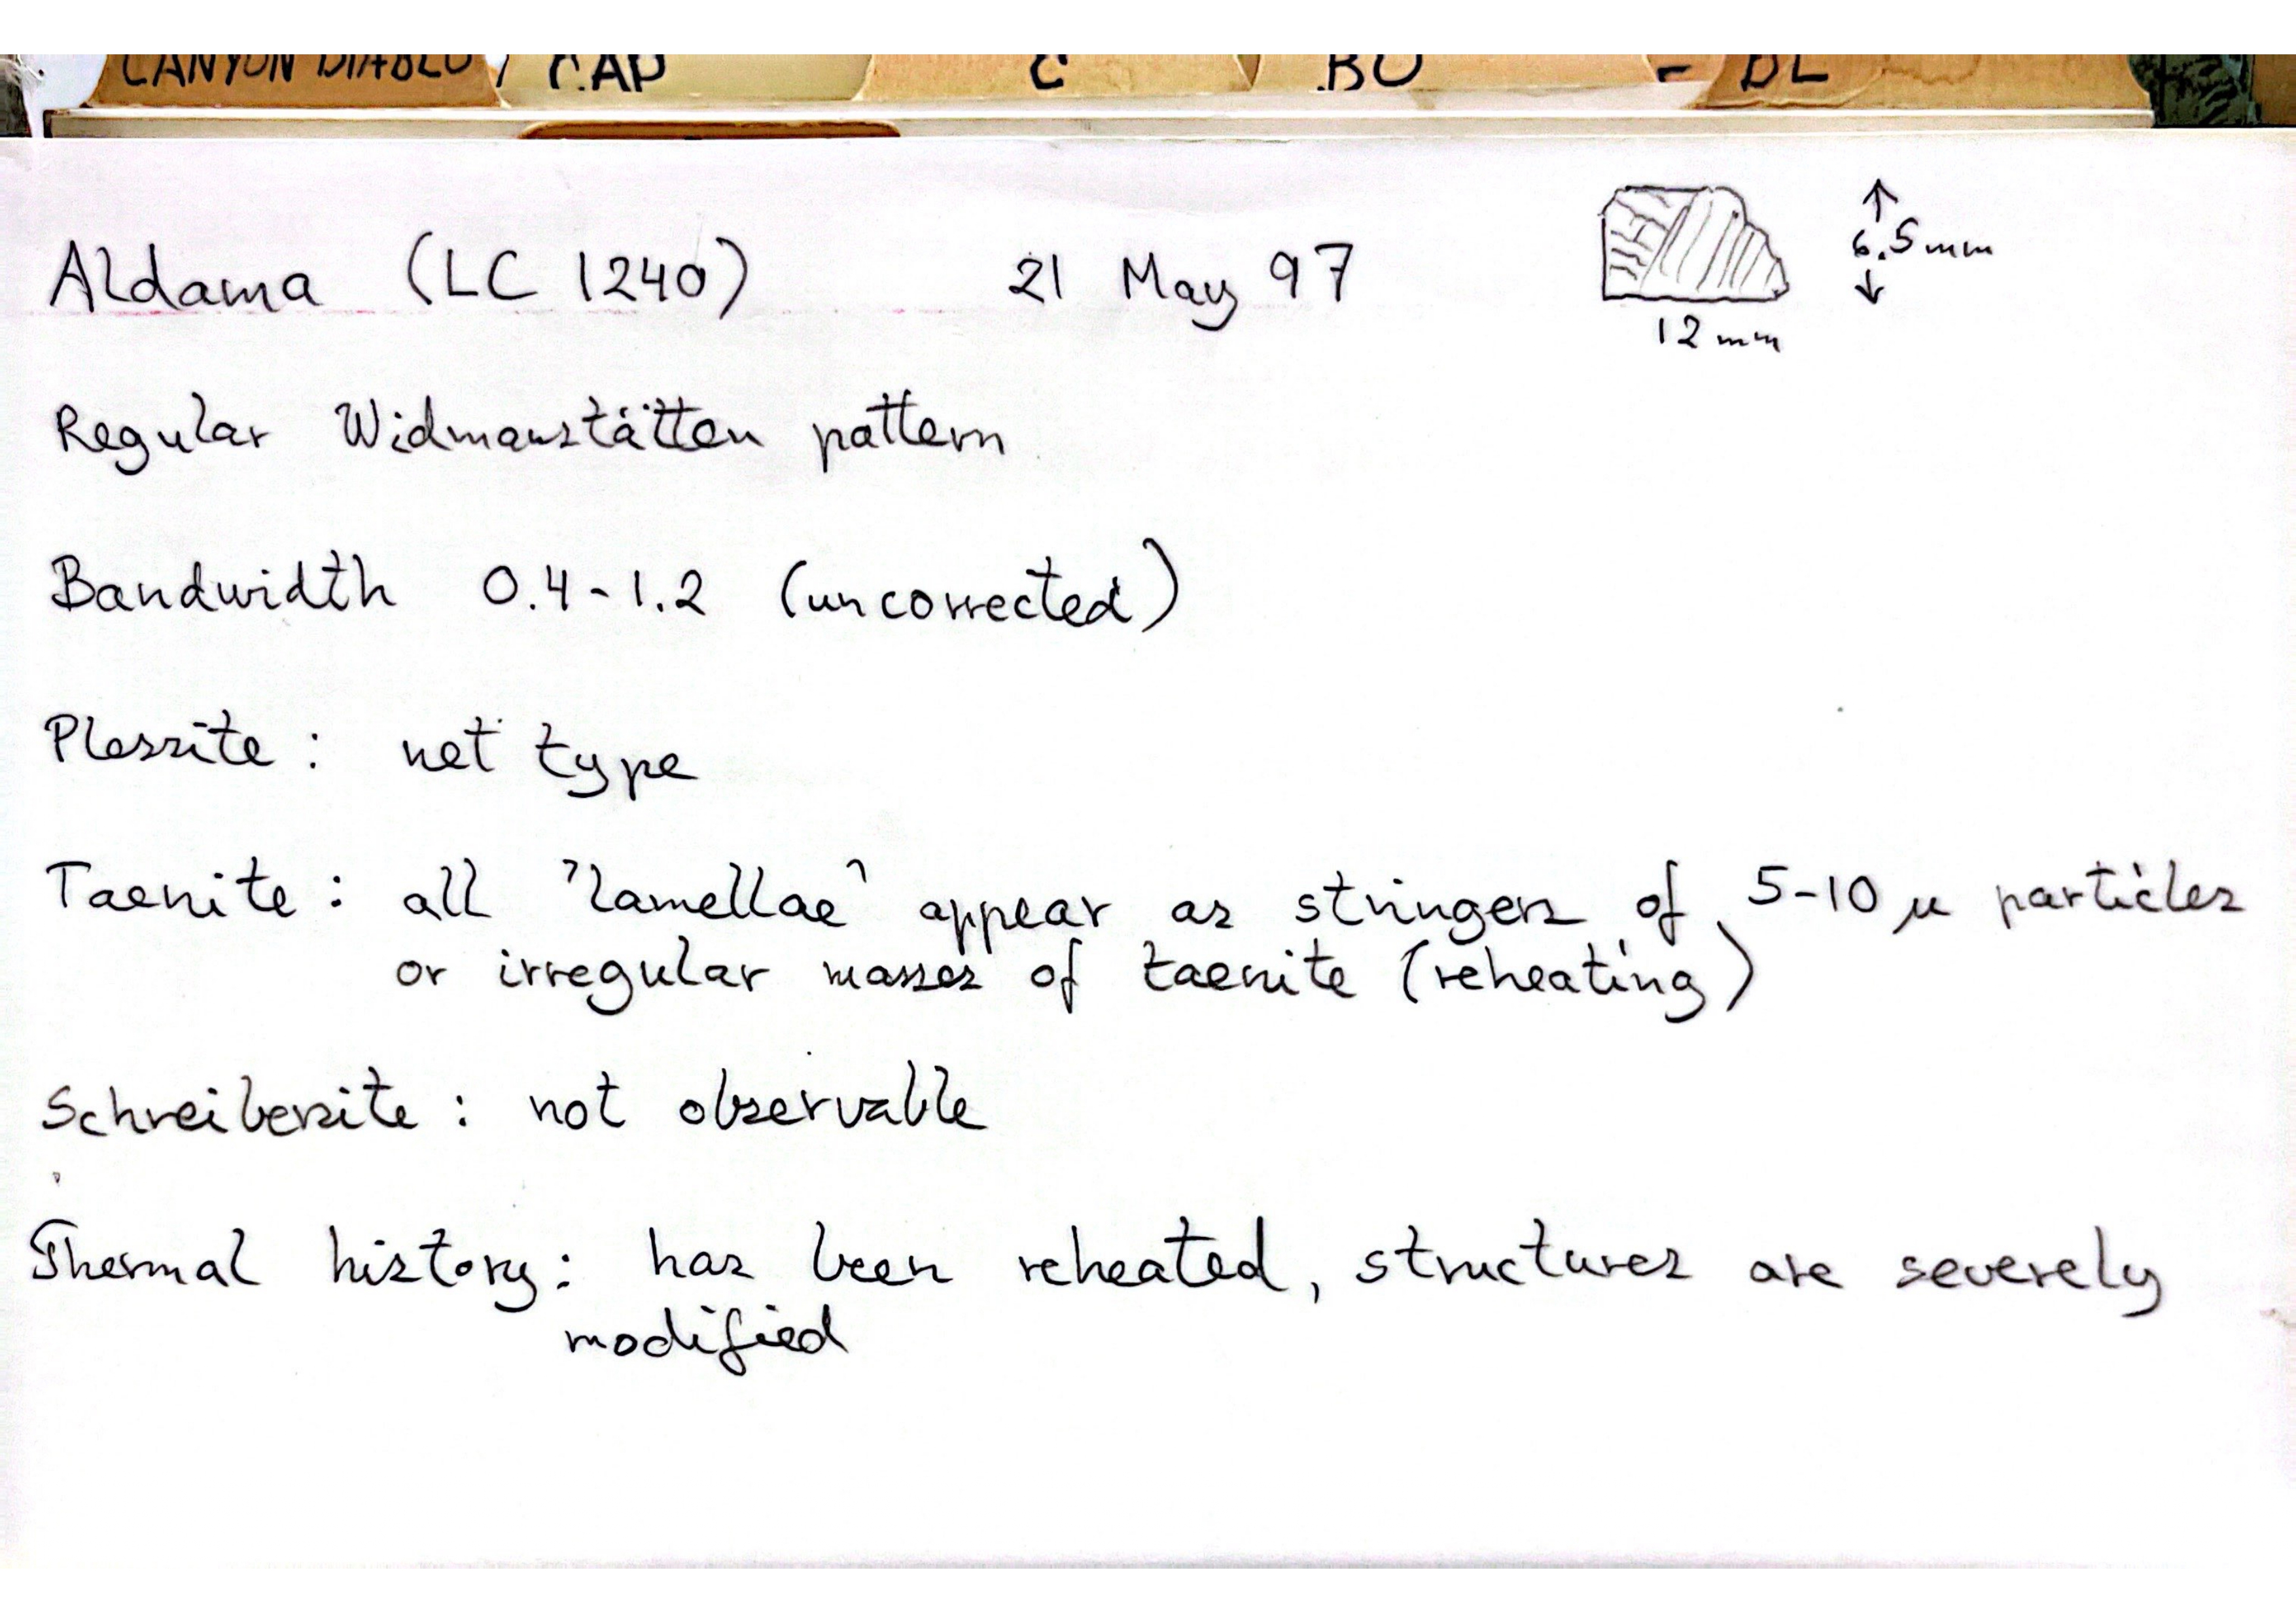 CANYON DIABLO CAP C BO - DL
Aldama (LC 1240) 21 May 97
6.5mm
12mm
Regular Widmanstätten pattern
Bandwidth 0.4-1.2 (uncorrected)
Plessite: net type
Taenite: all 'lamellae' appear as stringers of 5-10 μ particles
or irregular masses of taenite (reheating)
Schreibersite: not observable
Thermal history: has been reheated, structures are severely
modified